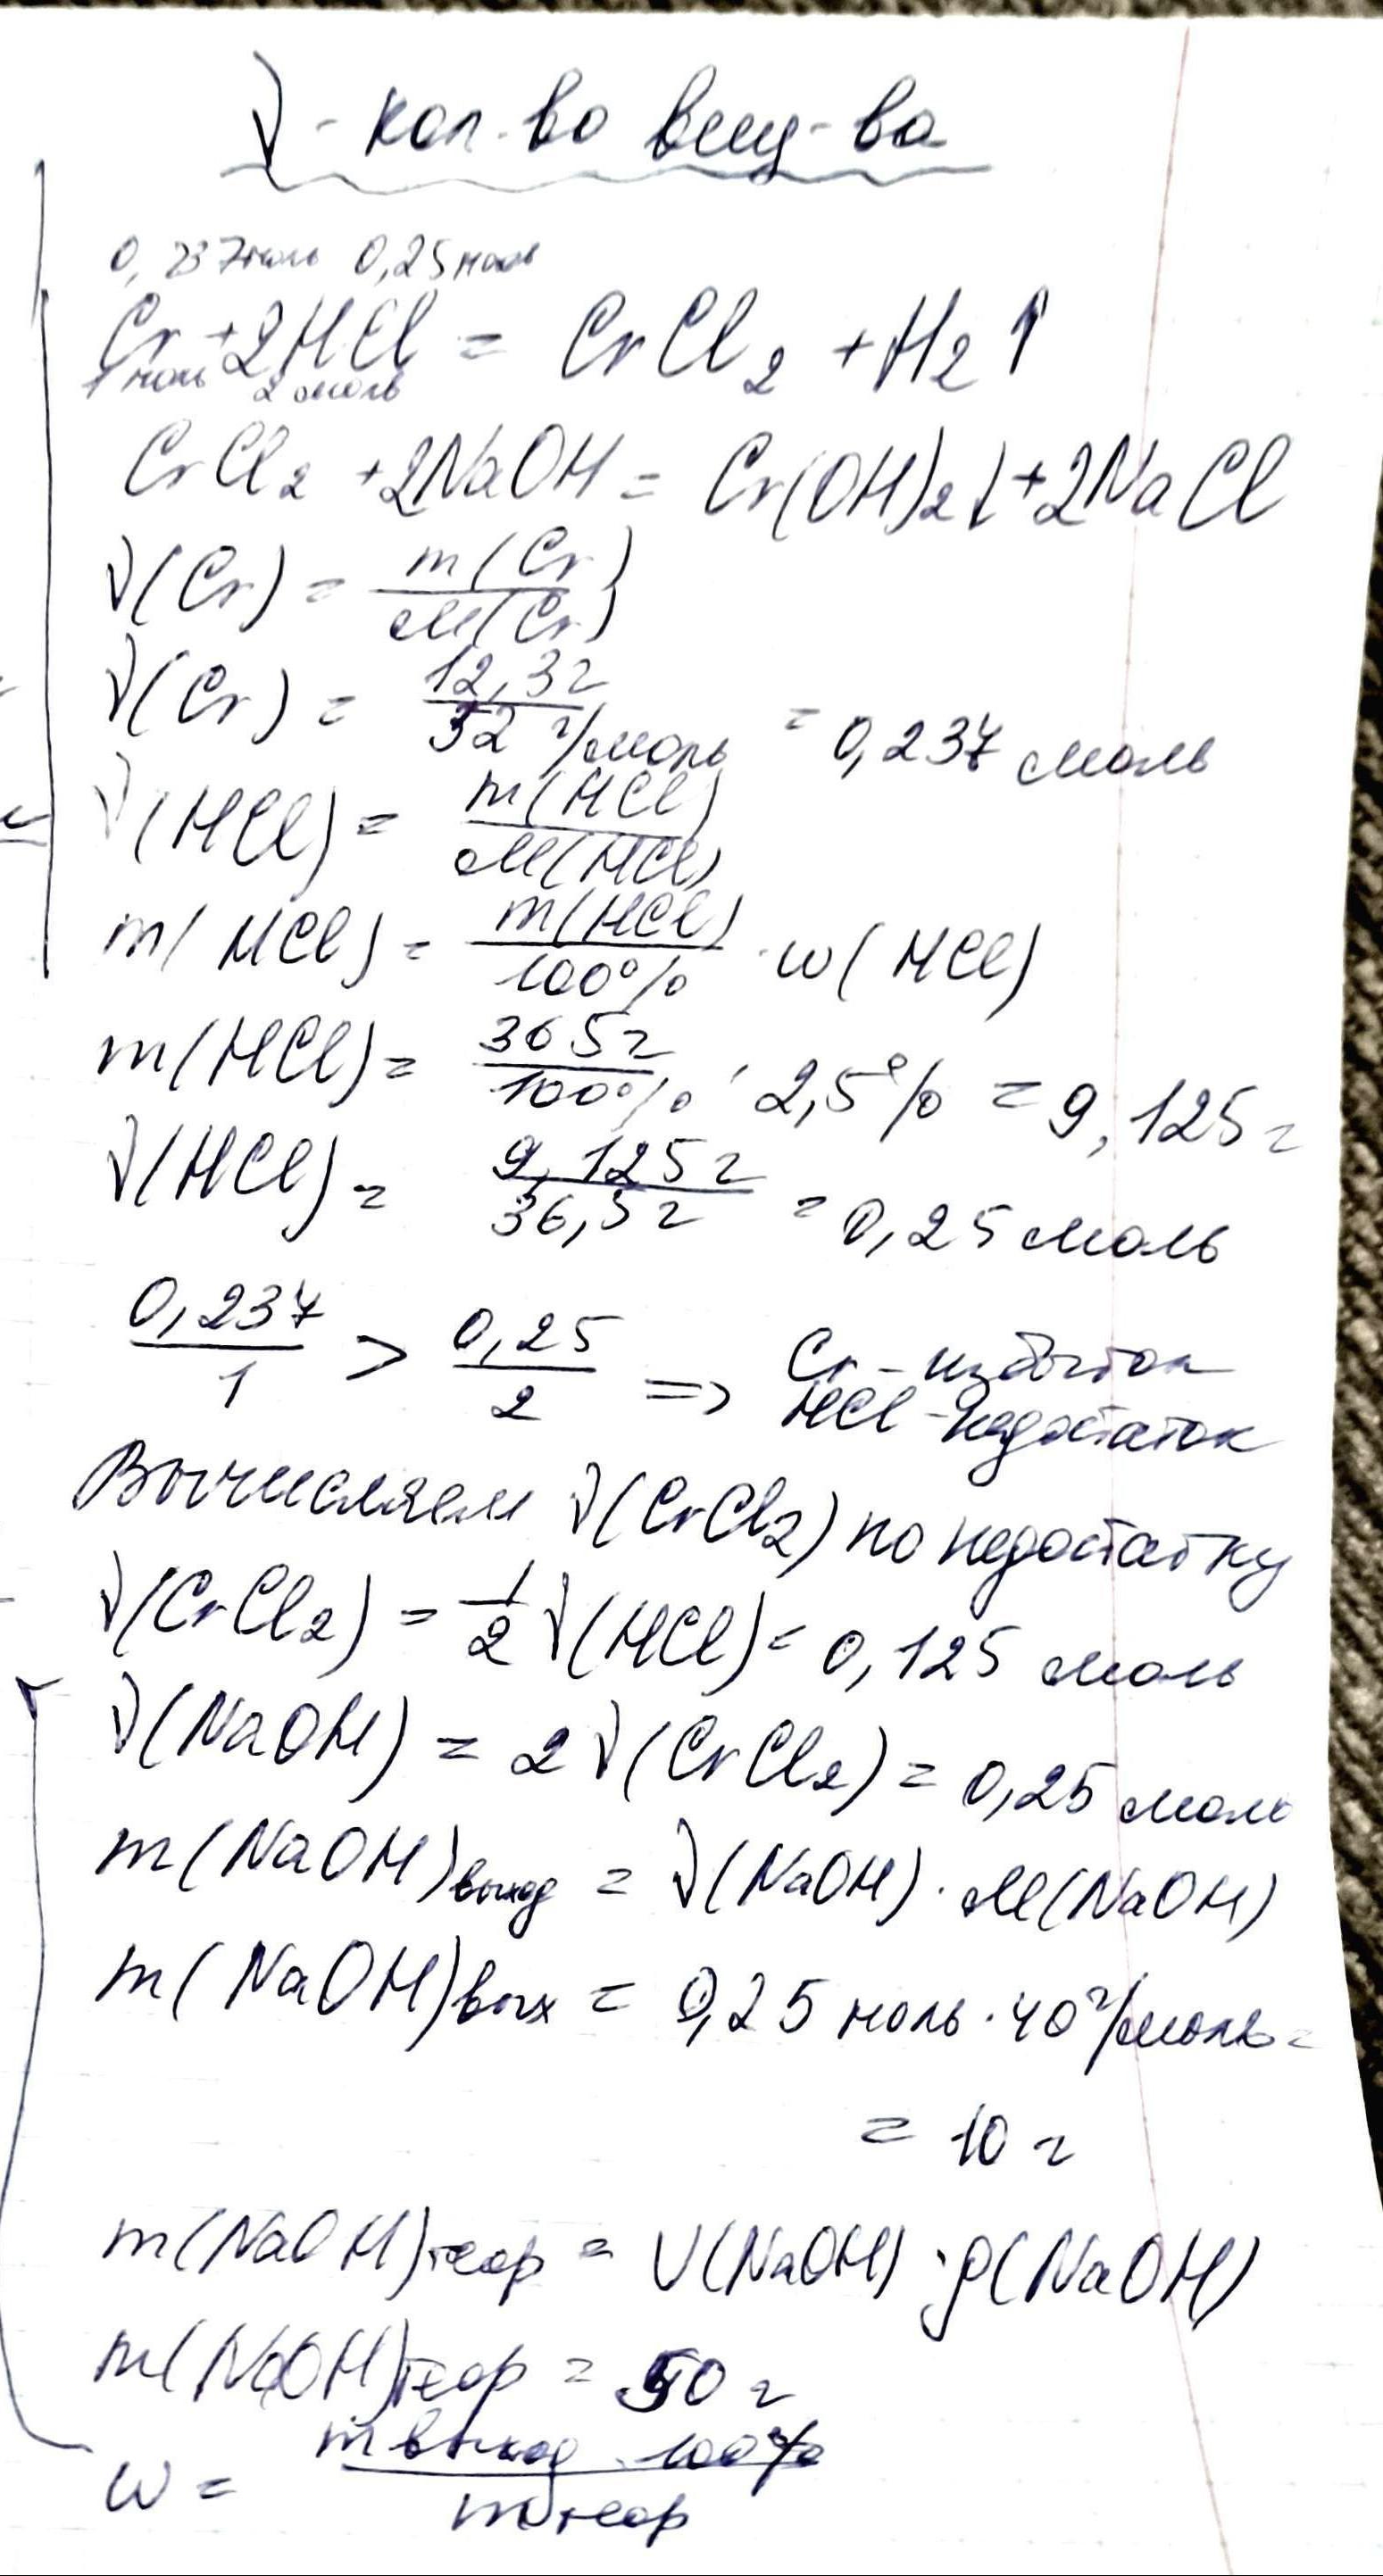 ν - кол-во вещ-ва
0,237моль 0,25моль
Cr + 2HCl = CrCl₂ + H₂↑
1 моль 2 моль
CrCl₂ + 2NaOH = Cr(OH)₂↓ + 2NaCl
ν(Cr) = m(Cr) / M(Cr)
ν(Cr) = 12,3г / 52 г/моль = 0,237 моль
ν(HCl) = m(HCl) / M(HCl)
m(HCl) = m(HCl) / 100% · w(HCl)
m(HCl) = 365г / 100% · 2,5% = 9,125г
ν(HCl) = 9,125г / 36,5г = 0,25 моль
0,237 / 1 > 0,25 / 2 => Cr - избыток
HCl - недостаток
Вычисляем ν(CrCl₂) по недостатку
ν(CrCl₂) = 1/2 ν(HCl) = 0,125 моль
ν(NaOH) = 2ν(CrCl₂) = 0,25 моль
m(NaOH)выход = ν(NaOH) · M(NaOH)
m(NaOH)вых = 0,25 моль · 40г/моль =
= 10 г
m(NaOH)теор = V(NaOH) · ρ(NaOH)
m(NaOH)теор = 50 г
w = mвыход · 100% / mтеор